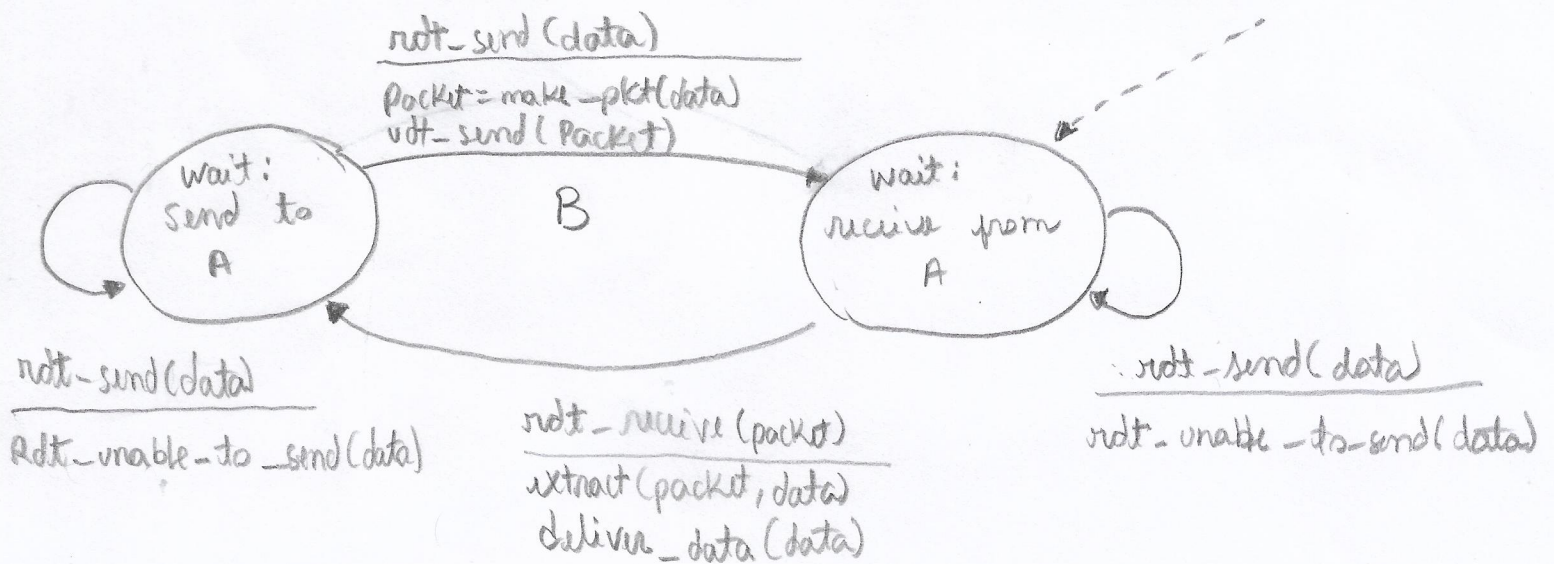 rdt_send(data)
Packet = make_pkt(data)
udt_send(Packet)
wait:
send to
A
B
wait:
receive from
A
rdt_send(data)
Rdt_unable_to_send(data)
rdt_receive(packet)
extract(packet, data)
deliver_data(data)
rdt_send(data)
rdt_unable_to_send(data)